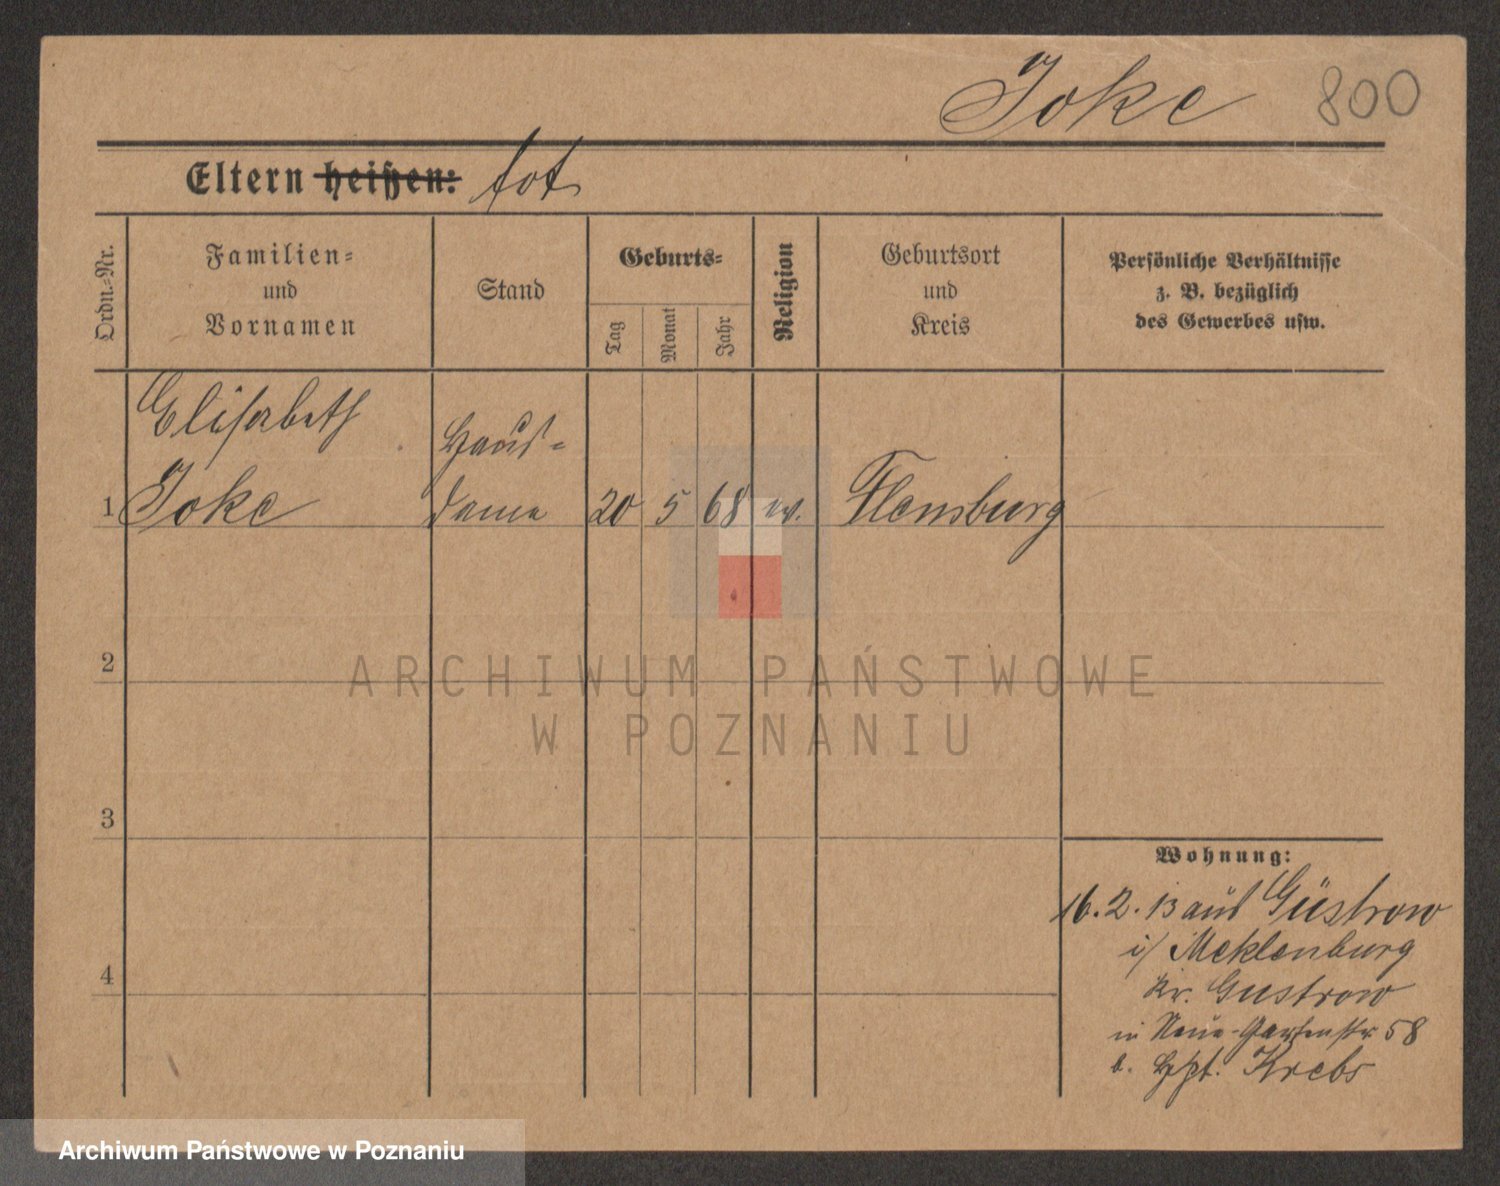 Joke 800
Eltern heißen: tot
Ordn.-Nr.
Familien-
und
Vornamen
Stand
Geburts-
Tag
Monat
Jahr
Religion
Geburtsort
und
Kreis
Persönliche Verhältnisse
z. B. bezüglich
des Gewerbes usw.
Elisabeth Haus-
1 Joke dame 20 5 68 ev. Flensburg
2
ARCHIWUM PAŃSTWOWE
W POZNANIU
3
Wohnung:
16. 2. 13 aus Güstrow
i/ Meklenburg
4
Kr. Gustrow
in Neue-Gartenstr 58
b. Hpt. Krebs
Archiwum Państwowe w Poznaniu